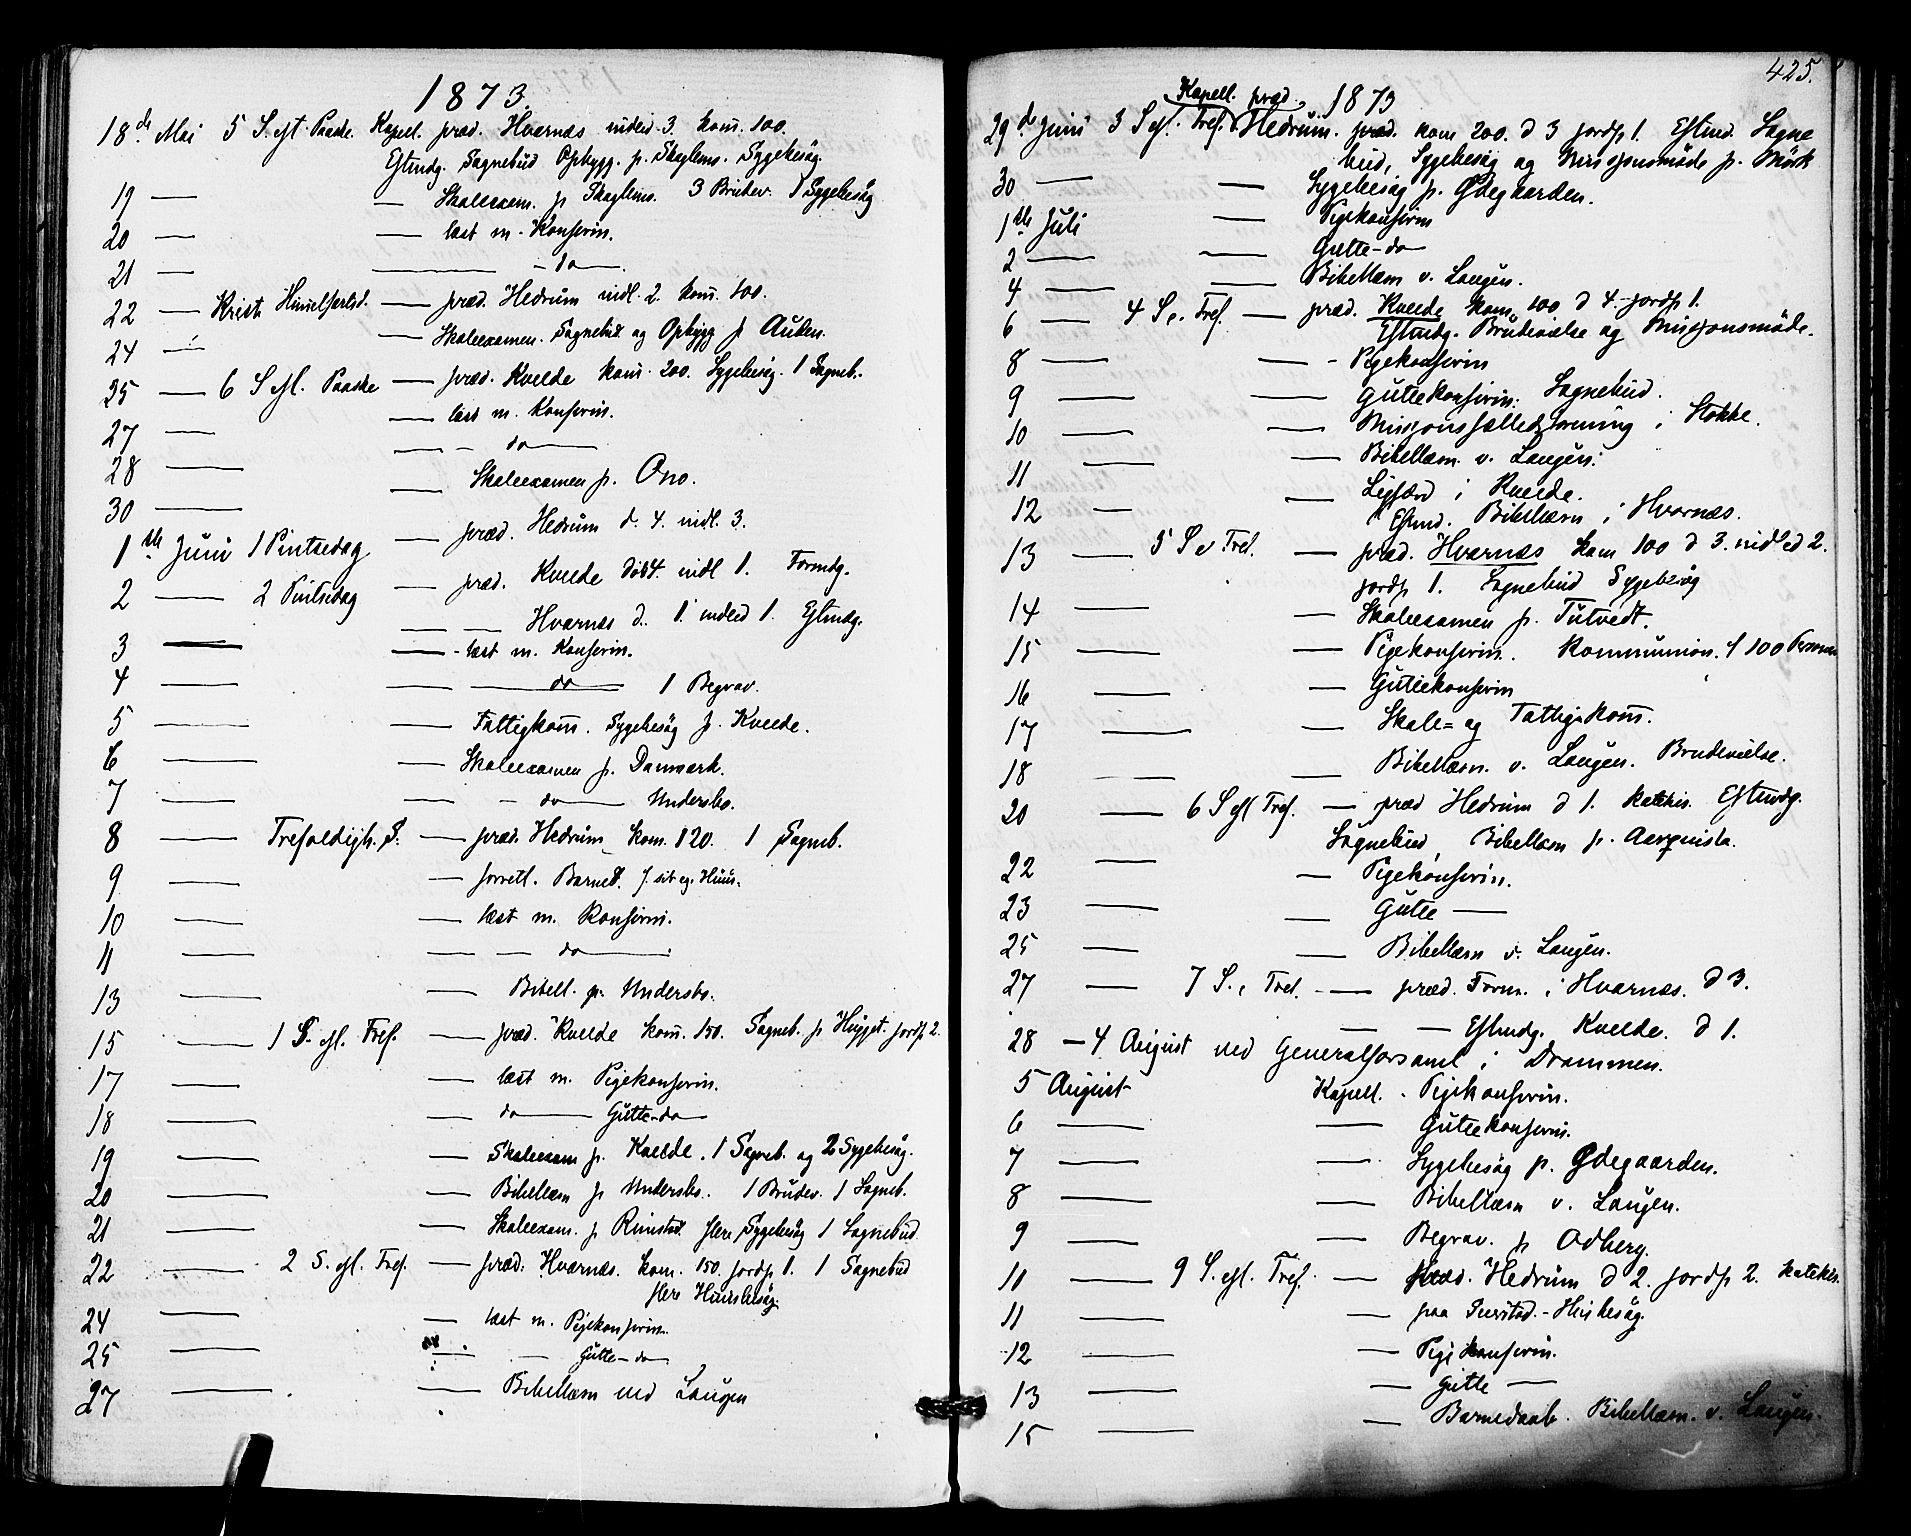 1873.
18de Mai 5 S. eft. Paaske. Kapell. præd. Hvarnæs indled. 3. kom. 100.
Eftmdg. Sognebud Opbygg. p. Skaglems. Sygebesøg.
19 — — Skoleexam. p. Skaglems. 3 Brudev. 1 Sygebesøg
20 — — læst m. Konfirm.
21 — — do —
22 — Kristi Himmelfartsd. — præd. Hedrum indl. 2. kom. 100.
24 — — Skoleexamen. Sognebud og Opbygg p Auken.
25 — 6 S. eft. Paaske — præd. Kvelde kom. 200. Sygebesøg. 1 Sogneb.
27 — — læst m. Konfirm.
28 — — do —
30 — — Skoleexamen p. Ono.
1ste Juni 1 Pintsedag — præd. Hedrum d. 4. indl. 3.
2 — 2 Pintsedag — præd. Kvelde 4. indl 1. Formdg.
— — Hvarnæs d. 1 indled 1. Eftmdg.
3 — — læst m. Konfirm.
4 — — do — 1 Begrav.
5 — — Fattigkom. Sygebesøg p. Kvelde.
6 — — Skoleexamen p. Danmark.
7 — — do — Undersbo.
8 — Trefoldigh. S. — præd. Hedrum kom. 120. 1 Sogneb.
9 — — forretl. Barned.
10 — — læst m. Konfirm.
11 — — do —
13 — — Bibell. p. Undersbo.
15 — 1 S. eft. Tref. — præd. Kvelde kom. 150. Sogneb. p jordp 2.
17 — — læst m. Pigekonfirm.
18 — — do — Gutte-do
19 — — Skoleexam p. Kvelde. 1 Sogneb. og 2 Sygebesøg.
20 — — Bibellæsn p Undersbo. 1 Brudev. 1 Sogneb.
21 — — Skoleexam. p Rimstad flere Sygebesøg 1 Sognebud
22 — 2 S. eft. Tref. — præd. Hvarnæs. kom. 150. jordp 1. 1 Sognebud
flere Huusbesøg.
24 — — læst m. Pigekonfirm.
25 — — Gutte-do
27 — — Bibellæsn ved Laugen
425.
1873
Kapell. præd.
29de Juni 3 S. ef. Tref. Hedrum. præd. kom 200. d 3 jordp 1. Eftmd. Sogne
bud, Sygebesøg og Missjonsmøde p. Mørk
30 — — Sygebesøg p. Ødegaarden.
1ste Juli — Pigekonfirm
2 — — Gutte-do
4 — — Bibellæsn v. Laugen.
6 — 4 S e. Tref. — præd. Kvelde kom. 100 d 4. jordp 1.
Eftmdg. Brudevielse og Missjonsmøde.
8 — — Pigekonfirm
9 — — Guttekonfirm. Sognebud.
10 — — Missjonsfælledsforening i Stokke.
11 — — Bibellæsn v. Laugen.
12 — — Ligfærd i Kvelde.
Eftmd. Bibellæsn i Hvarnæs.
13 — 5 S e Tref. — præd. Hvarnæs kom 100 d 3. indled 2.
jordp 1. Sognebud Sygebesøg
14 — — Skoleexamen p. Tutvedt.
15 — — Pigekonfirm. Kommunion. f 100 Personer
16 — — Guttekonfirm
17 — — Skole- og Fattigkom.
18 — — Bibellæsn. v. Laugen. Brudevielse.
20 6 S eft Tref. — præd Hedrum d 1. katekis. Eftmdg.
Sognebud Bibellæsn p.
22 — — Pigekonfirm.
23 — — Gutte —
25 — — Bibellæsn v. Laugen.
27 — 7 S. e Tref. — præd. Form. i Hvarnæs. d 3.
— — Eftmdg. Kvelde. d 1.
28 — 4 August ved Generalforsaml i Drammen.
5 August Kapell. Pigekonfirm.
6 — — Guttekonfirm.
7 — — Sygebesøg p. Ødegaarden.
8 — — Bibellæsn v. Laugen.
9 — — Begrav. p Odberg.
10 — 9 S. eft. Tref. — Præd. Hedrum d 2. jordp 2. katekis.
11 — — paa — Husbesøg.
12 — — Pigekonfirm.
13 — — Gutte —
15 — — Barnedaab. Bibellæsn. v. Laugen.